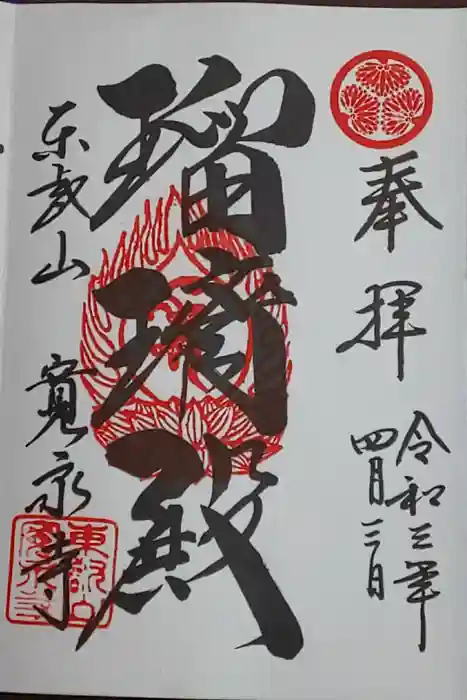 奉拝
令和三年
四月三日
瑠璃殿
東叡山 寛永寺